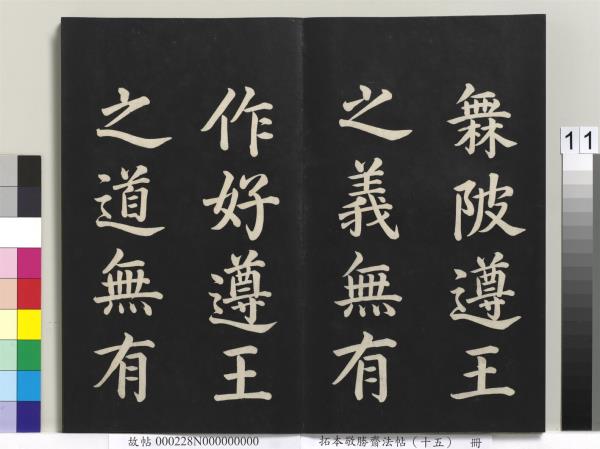 橆陂遵王
之義無有
作好遵王
之道無有
11
故帖 000228N000000000
拓本敬勝齋法帖（十五） 冊